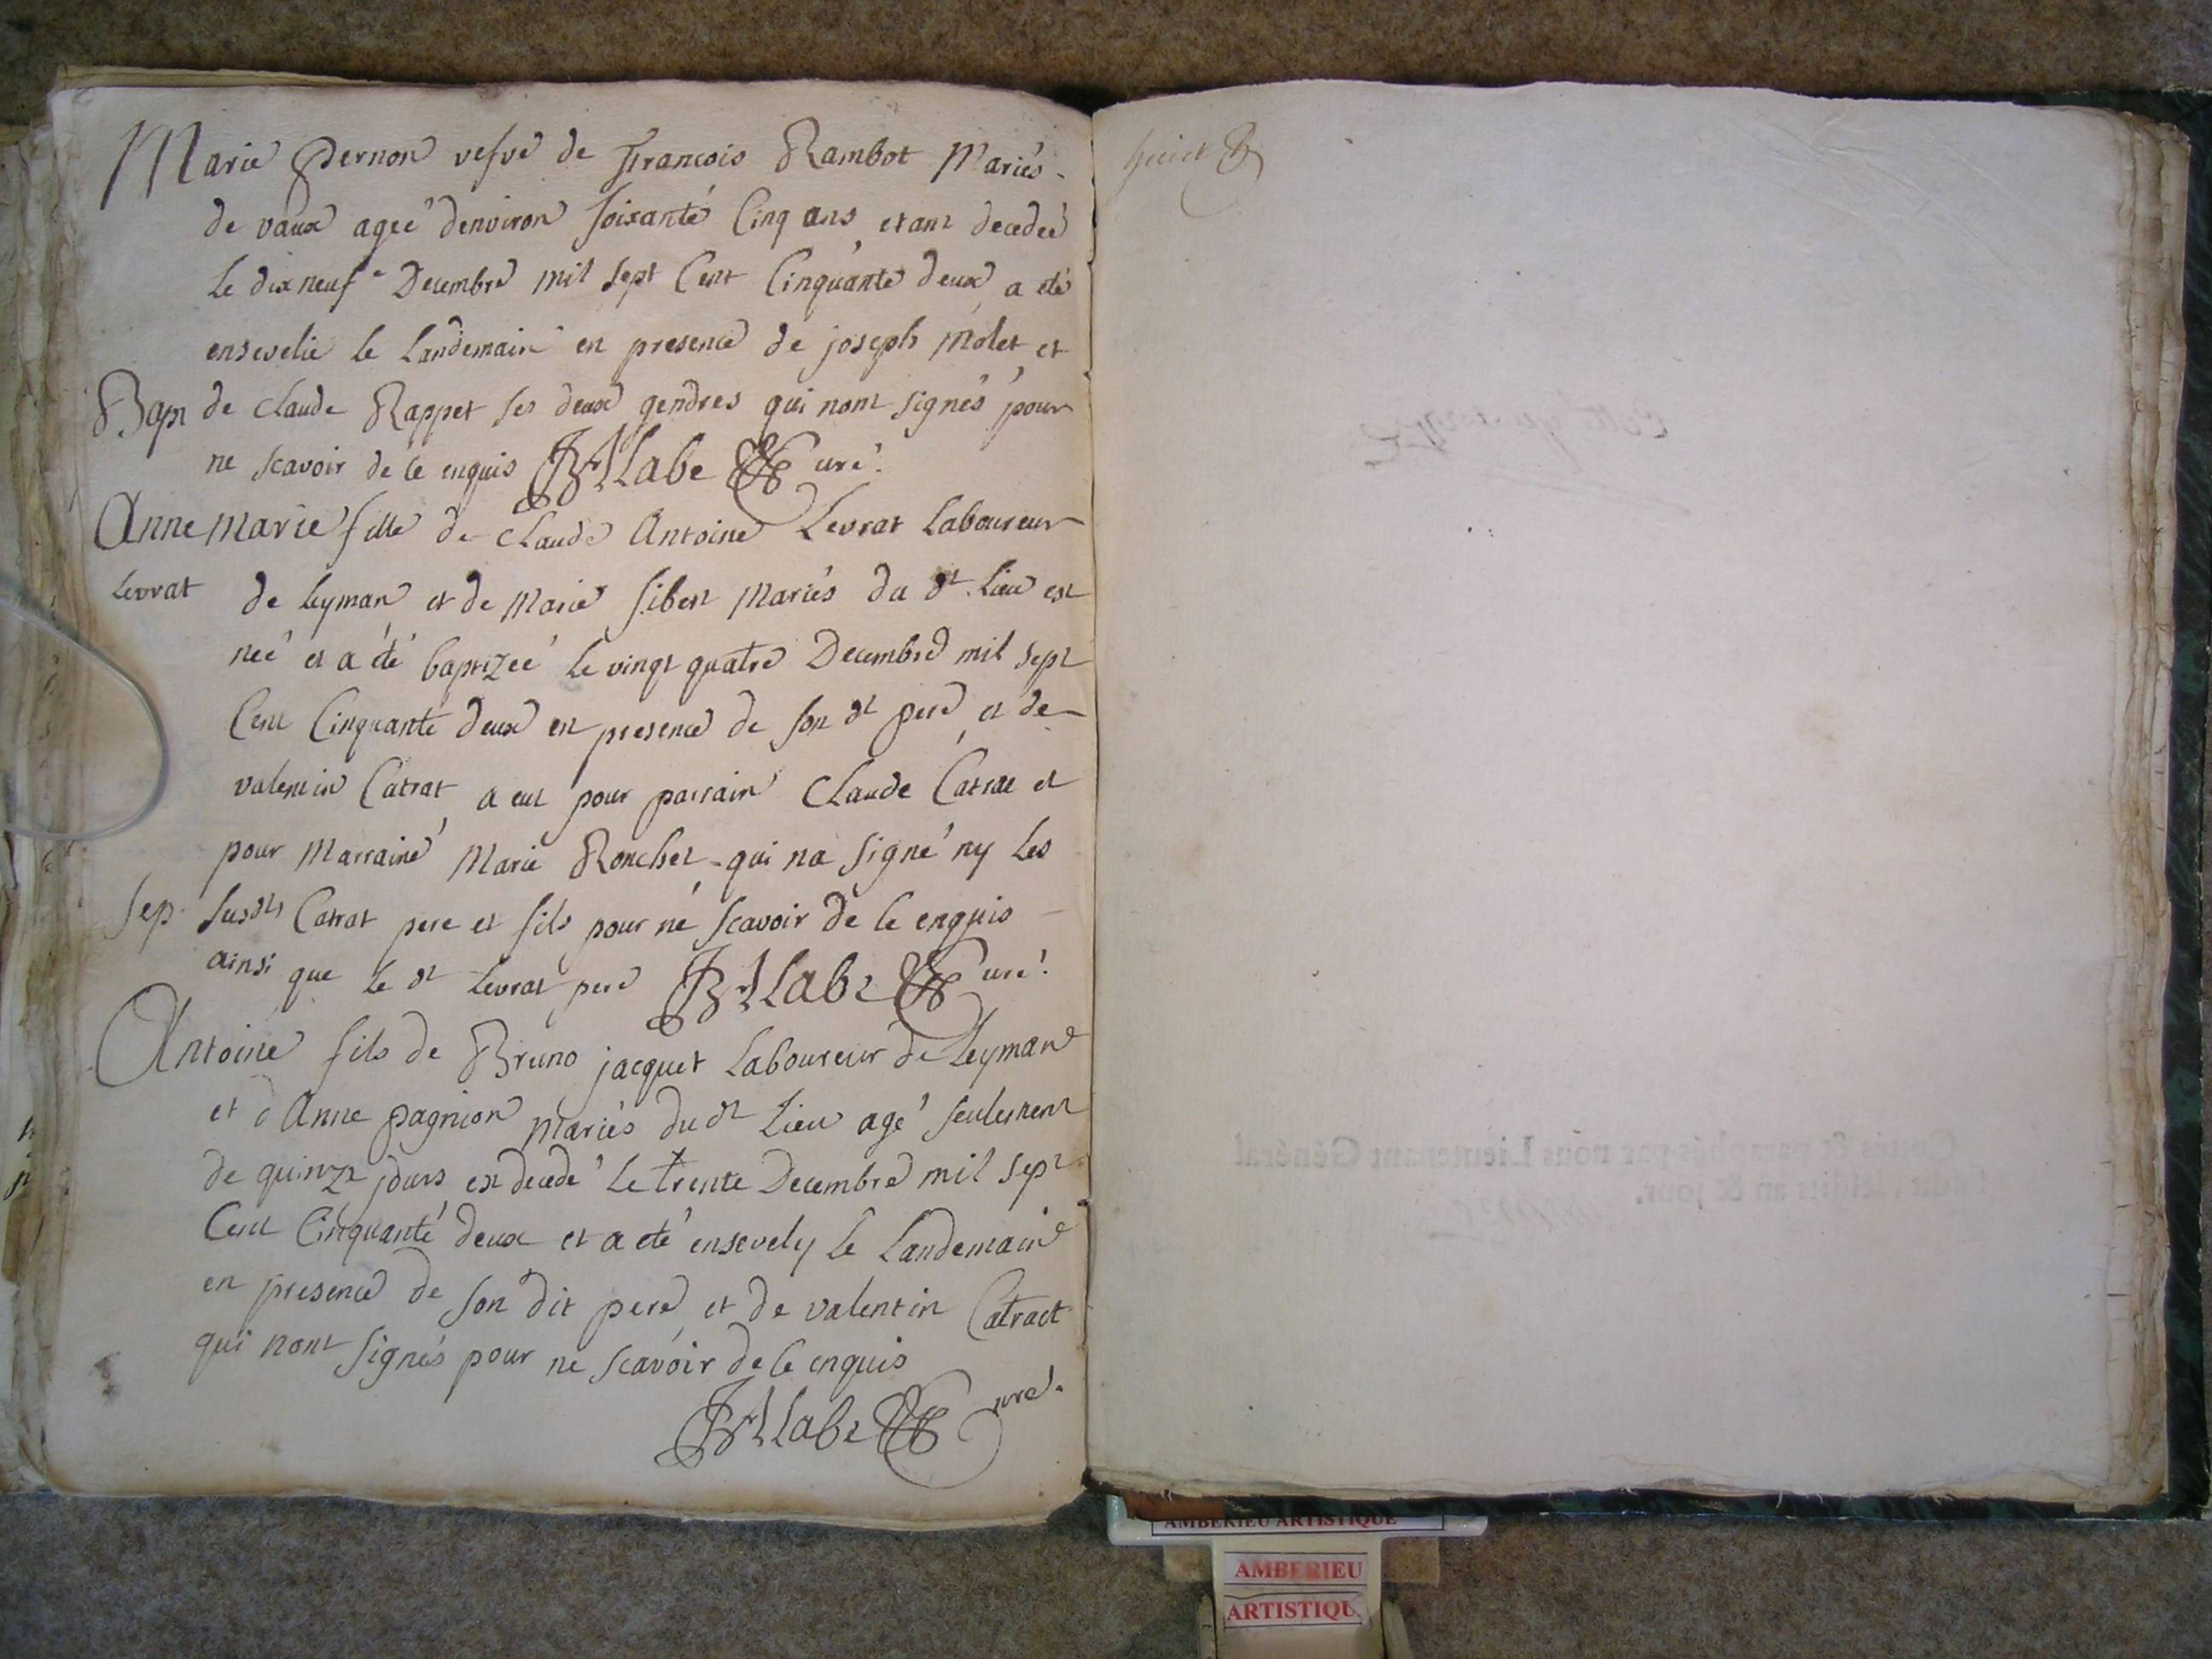 Marie Pernon vefve de Francois Rambot Mariés
de vaux agée denviron soixante Cinq ans etant decedeé
le dix neufe Decembre mil sept Cent Cinquante deux a eté
ensevelie le Landemain en presence de joseph Molet et
Bap de claude Rappet ses deux gendres qui nont signés pour
ne scavoir de ce enquis Labe Curé.
Anne marie fille de claude Antoine Levrat Laboureur
Levrat de Leyman et de Marie Sibert Mariés du dt. Lieu est
neé et a été baptizeé le vingt quatre Decembre mil sept
Cent Cinquante deux en presence de son dt pere et de
valentin Catrat a eut pour parrain Claude Catrat et
pour Marraine Marie Ronchet qui na signé ny les
Sep. susdts Catrat pere et fils pour ne scavoir de ce enquis
ainsi que le dt Levrat pere Labe Curé.
Antoine fils de Bruno jacquet Laboureur de Leyman
et d Anne pagnion mariés du dt Lieu agé seulement
de quinze jours est decedé le trente Decembre mil sept
Cent Cinquante deux et a eté ensevely le Landemain
en presence de son dit pere et de valentin Catract
qui nont signés pour ne scavoir de ce enquis
Labe Curé.
Cottés & paraphés par nous Lieutenant Général
susdit, lesdits an & jour.
AMBERIEU ARTISTIQUE
AMBERIEU
ARTISTIQU